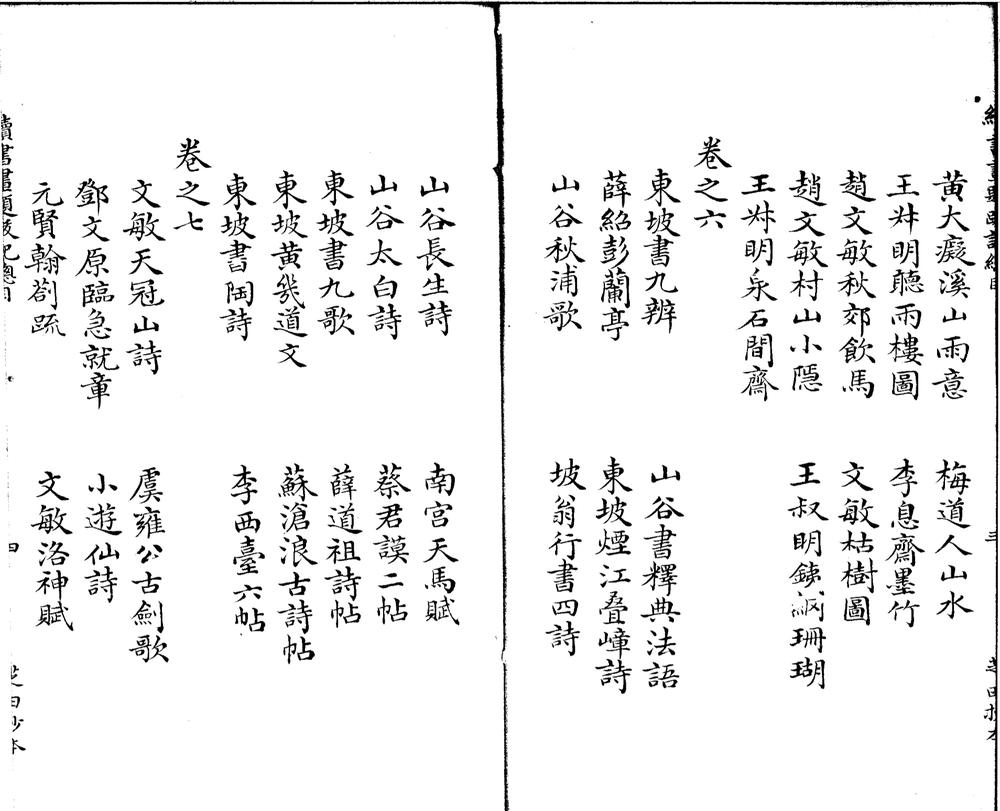 黃大癡溪山雨意　梅道人山水
王叔明聽雨樓圖　李息齋墨竹
趙文敏秋郊飲馬　文敏枯樹圖
趙文敏村山小隱　王叔明鐵網珊瑚
王叔明泉石間齋
卷之六
東坡書九辨　山谷書釋典法語
薛紹彭蘭亭　東坡煙江疊嶂詩
山谷秋浦歌　坡翁行書四詩
山谷長生詩　南宫天馬賦
山谷太白詩　蔡君謨二帖
東坡書九歌　薛道祖詩帖
東坡黄幾道文　蘇滄浪古詩帖
東坡書陶詩　李西臺六帖
卷之七
文敏天冠山詩　虞雍公古劍歌
鄧文原臨急就章　小遊仙詩
元賢翰劄疏　文敏洛神賦
續書畫題跋記總目　四